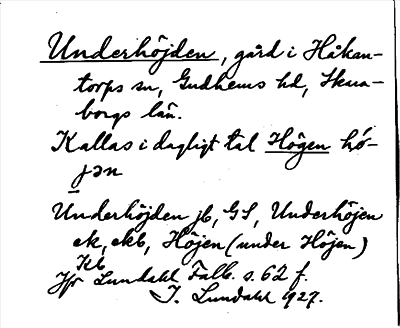 Underhöjden, gård i Håkan-
torps sn, Gudhems hd, Skara-
borgs län.
Kallas i dagligt tal Högen hö́-
jən
Underhöjden jb, GS, Underhöjen
ek, ekb, Höjen (under Höjen)
Kb
Jfr Lundahl Falb. s. 62 f.
I. Lundahl 1927.